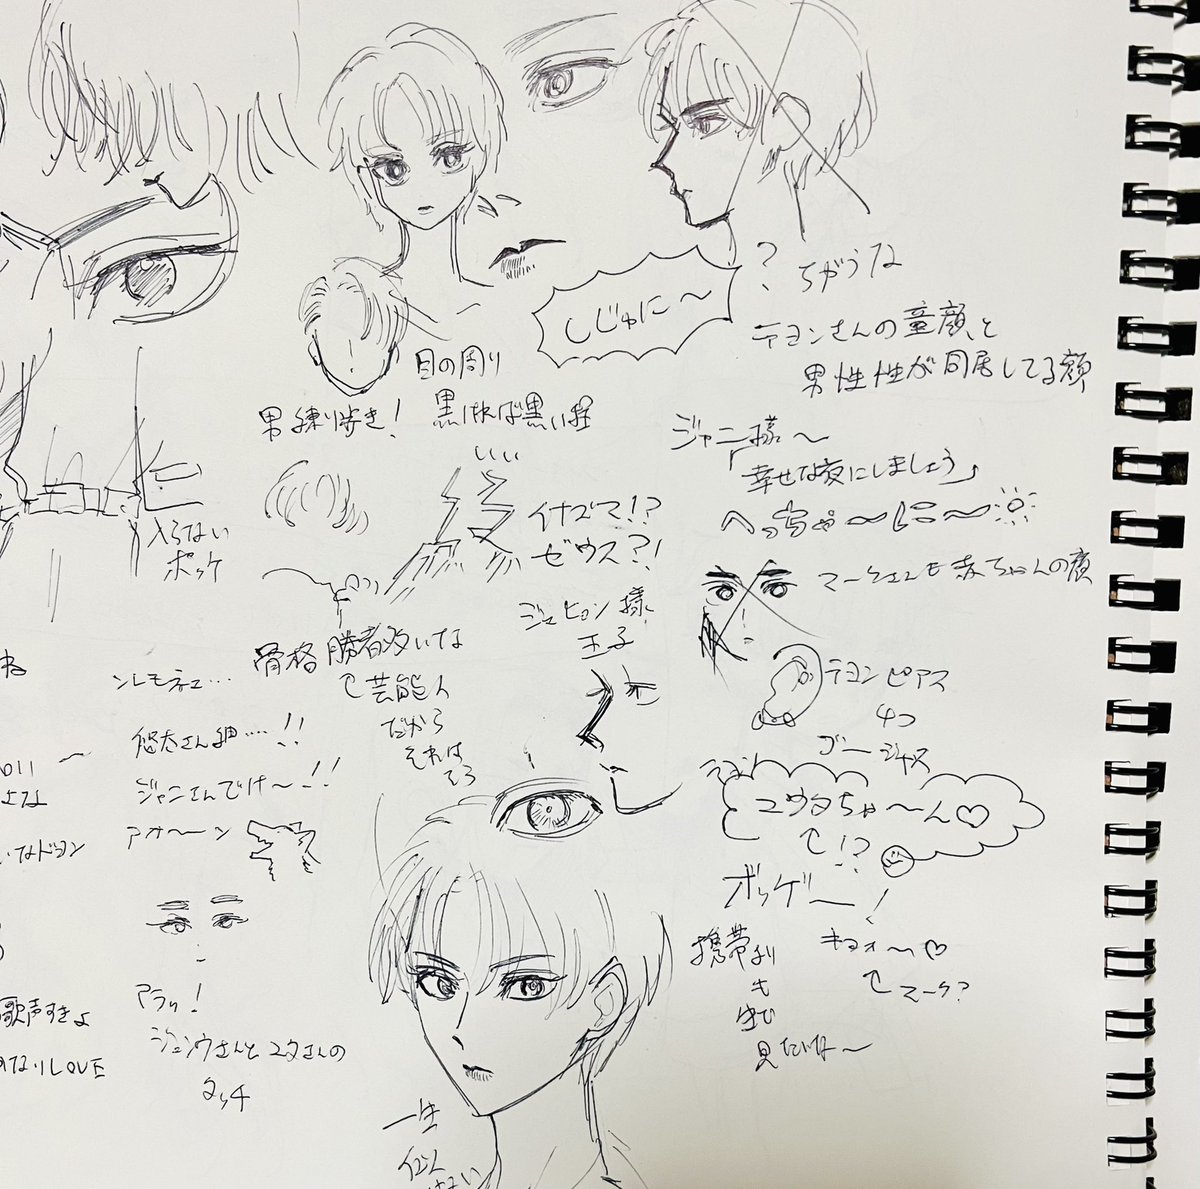 しじゅに〜
?ちがうな
テヨンさんの童顔と
男性性が同居してる顔
目の周り
黒ければ黒い程
いい
男練り歩き!
ジャニ様〜
幸せな夜にしましょう♪
イナズマ!?
ゼウス?!
入らない
ポッケ
マークさんも赤ちゃんの顔
ジェヒョン様
王子
骨格勝者多いな
芸能人
だから
それは
そう
テヨンピアス
4つ
ゴージャス
悠太さん細…!!
ジャニさんでけ〜!!
ユウタちゃ〜ん♡
!?
アオーーン
いなドヨン
ボッゲー!
キヨォ〜♡
マーク?
携帯より
も
生で
見たいな〜
アラッ!
ジョンウさんとユタさんの
タッチ
歌声すきよ
LOVE
一生
似ない